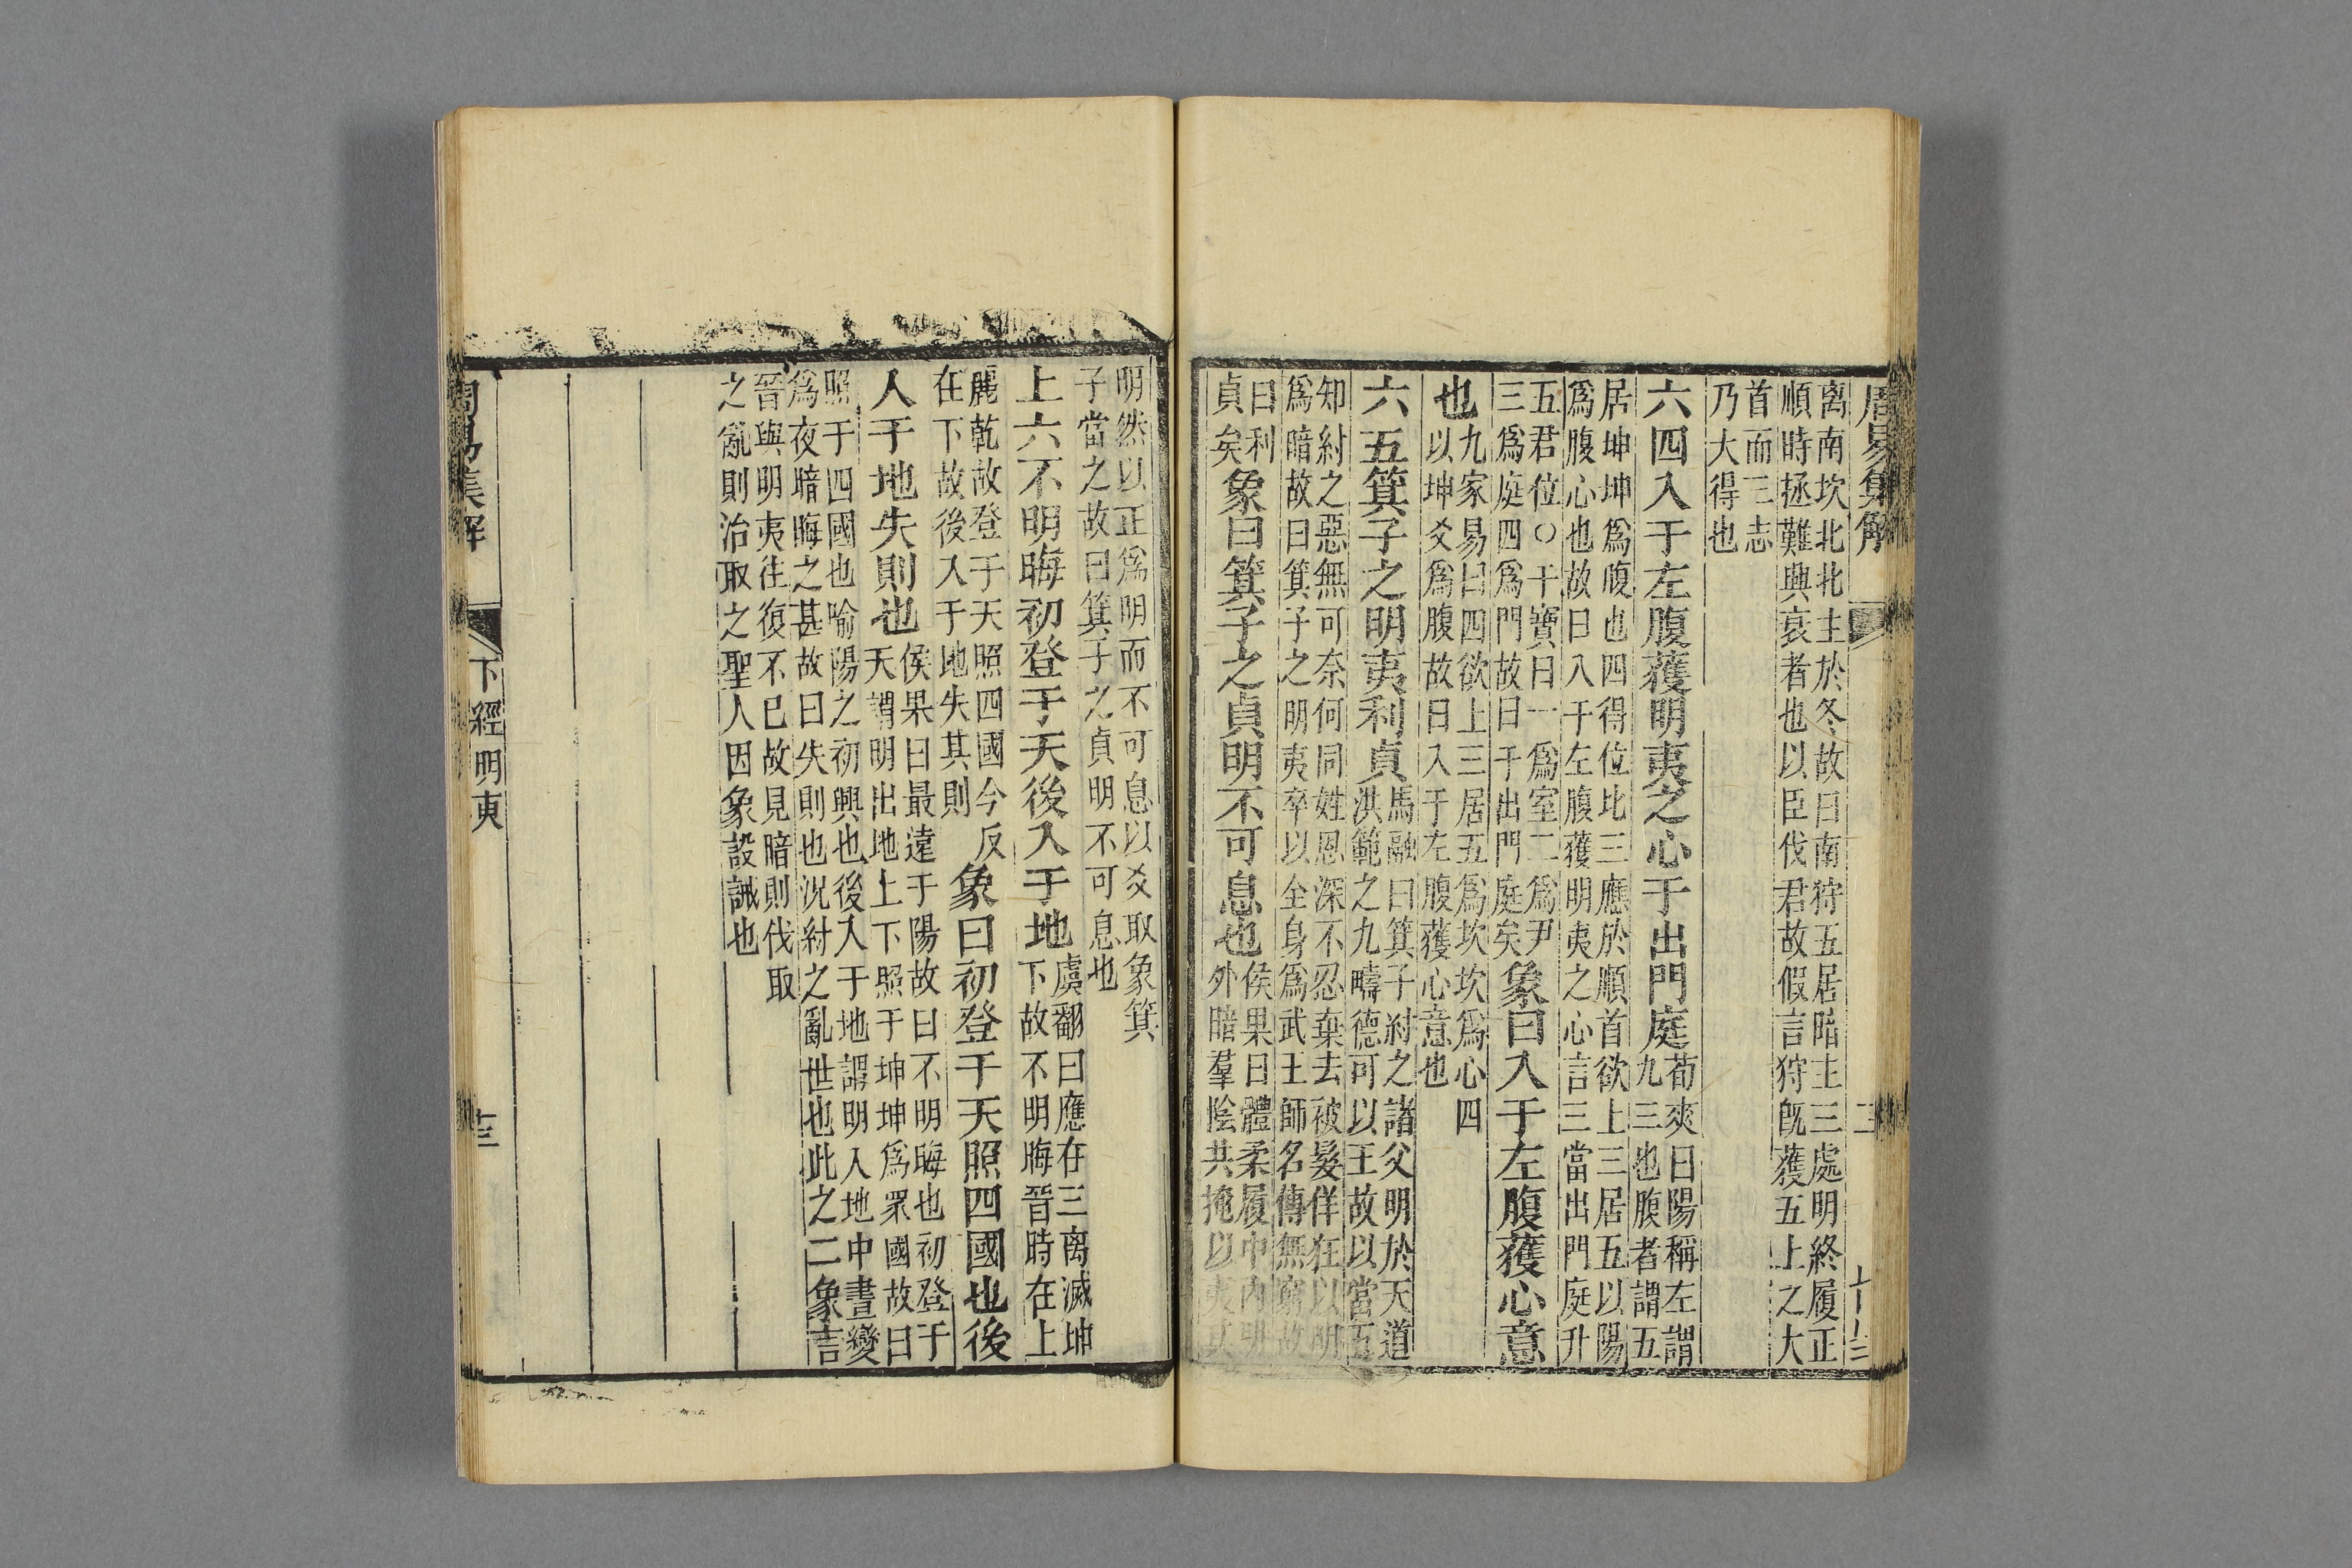 周易集解
離南坎北北主於冬故曰南狩五居暗主三處明終履正
順時拯難興衰者也以臣伐君故假言狩旣獲五上之大
首而三志
乃大得也
六四入于左腹獲明夷之心于出門庭荀爽曰陽稱左謂
九三也腹者謂五
居坤坤爲腹也四得位比三應於順首欲上三居五以陽
爲腹心也故曰入于左腹獲明夷之心言三當出門庭升
五君位○干寶曰一爲室二爲戶
三爲庭四爲門故曰于出門庭矣象曰入于左腹獲心意
也九家易曰四欲上三居五爲坎坎爲心四
以坤爻爲腹故曰入于左腹獲心意也
六五箕子之明夷利貞馬融曰箕子紂之諸父明於天道
洪範之九疇德可以王故以當五
知紂之惡無可奈何同姓恩深不忍棄去被髮佯狂以明
爲暗故曰箕子之明夷卒以全身爲武王師名傳無窮故
曰利
貞矣象曰箕子之貞明不可息也侯果曰體柔履中內明
外暗羣陰共掩以夷其
明然以正爲明而不可息以爻取象箕
子當之故曰箕子之貞明不可息也
上六不明晦初登于天後入于地虞翻曰應在三离滅坤
下故不明晦晉時在上
麗乾故登于天照四國今反
在下故後入于地失其則象曰初登于天照四國也後
入于地失則也侯果曰最遠于陽故曰不明晦也初登于
天謂明出地上下照于坤坤爲眾國故曰
照于四國也喻陽之初興也後入于地謂明入地中晝變
爲夜暗晦之甚故曰失則也況紂之亂世也此之二象言
晉與明夷往復不已故見暗則伐取
之亂則治取之聖人因象設誡也
周易集解
下經 明夷
十三